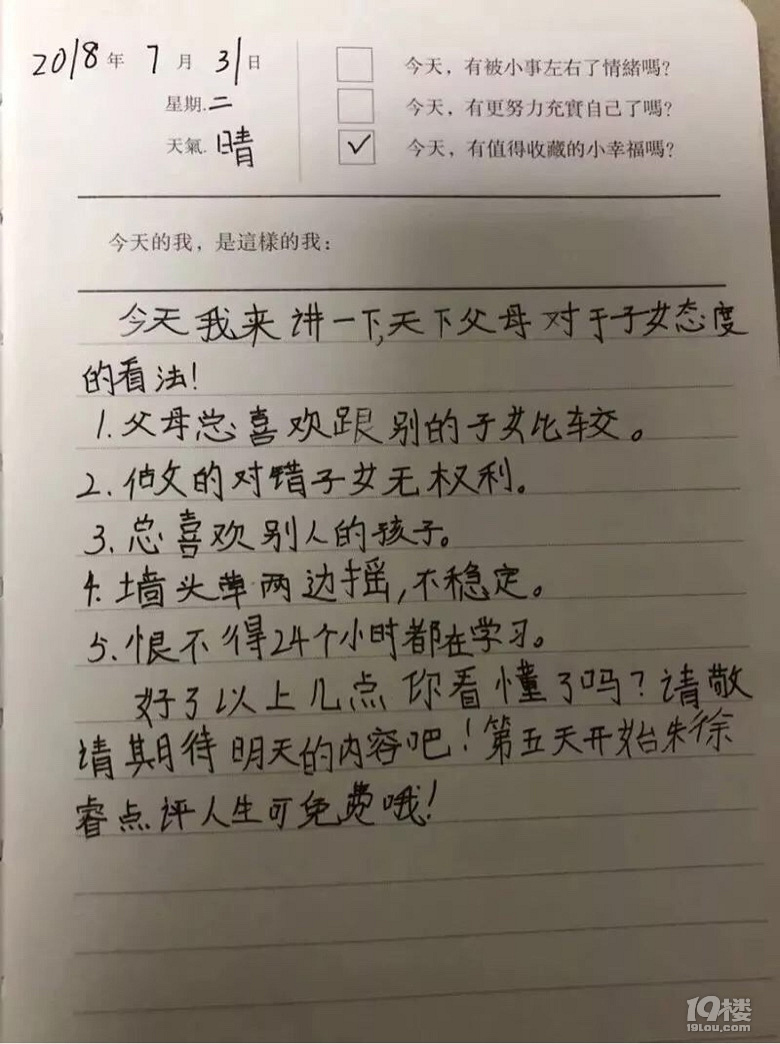 2018年 7月 31日
星期.二
天氣.晴
今天，有被小事左右了情緒嗎?
今天，有更努力充實自己了嗎?
今天，有值得收藏的小幸福嗎?
今天的我，是這樣的我：
今天我来讲一下,天下父母对于子女态度
的看法!
1.父母总喜欢跟别的子女比较。
2.的对错子女无权利。
3.总喜欢别人的孩子。
4.墙头草两边摇,不稳定。
5.恨不得24个小时都在学习。
好了以上几点你看懂了吗?请敬
请期待明天的内容吧!第五天开始朱徐
睿点评人生可免费哦!
19楼
19lou.com